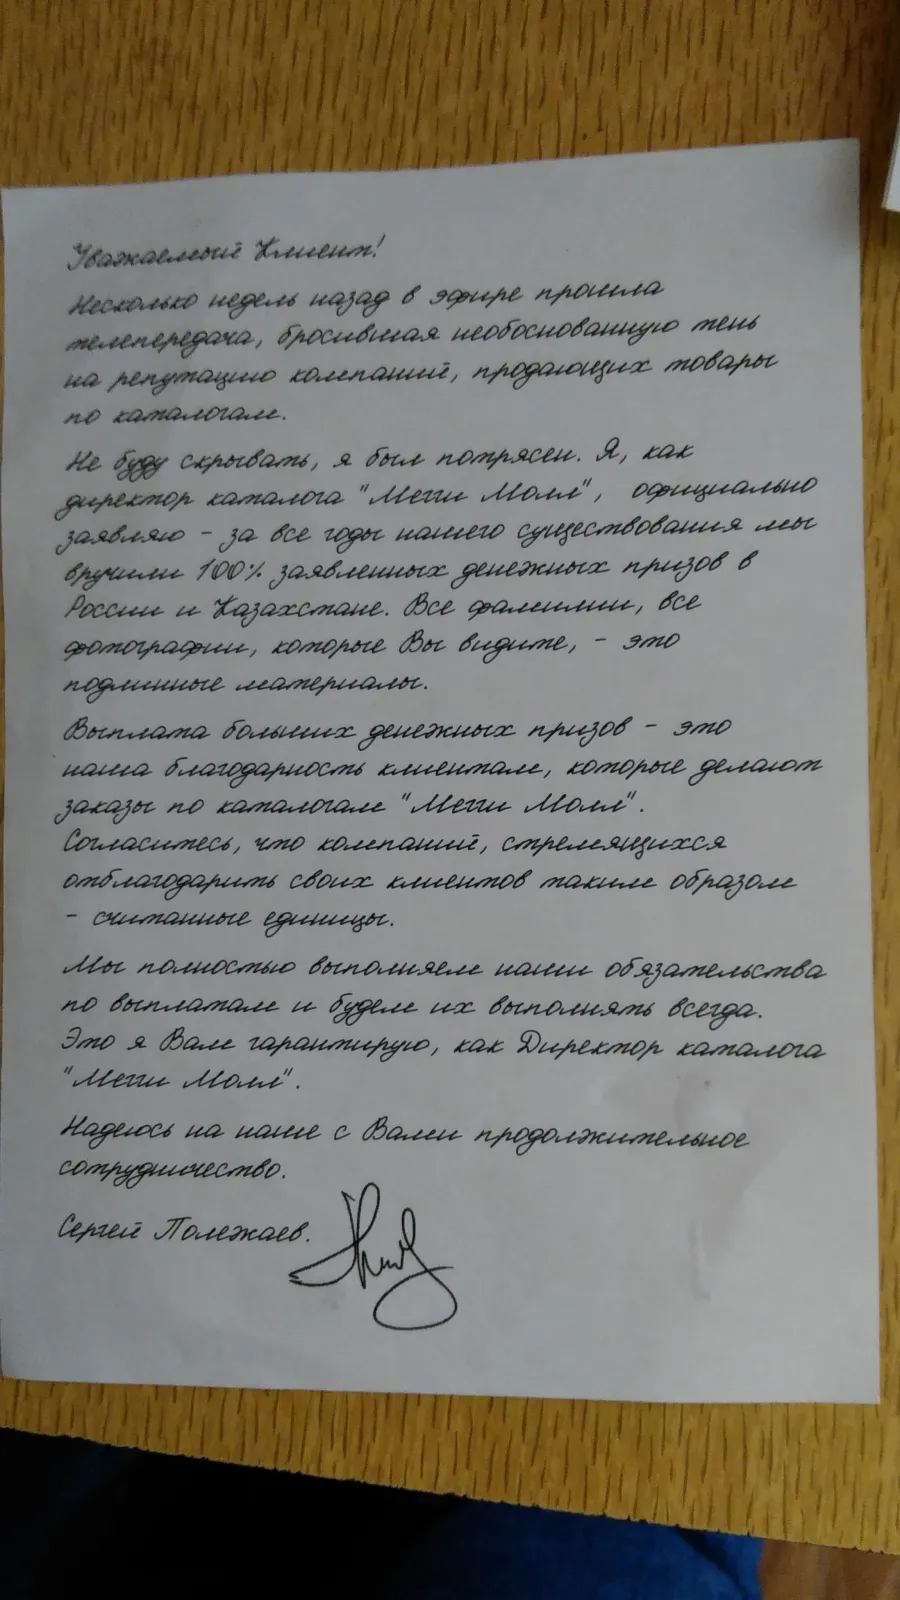 Уважаемый Клиент!
Несколько недель назад в эфире прошла
телепередача, бросившая необоснованную тень
на репутацию компаний, продающих товары
по каталогам.
Не буду скрывать, я был потрясен. Я, как
директор каталога "Мегги Молл", официально
заявляю - за все годы нашего существования мы
вручили 100% заявленных денежных призов в
России и Казахстане. Все фамилии, все
фотографии, которые Вы видите, - это
подлинные материалы.
Выплата больших денежных призов - это
наша благодарность клиентам, которые делают
заказы по каталогам "Мегги Молл".
Согласитесь, что компаний, стремящихся
отблагодарить своих клиентов таким образом
- считанные единицы.
Мы полностью выполняем наши обязательства
по выплатам и будем их выполнять всегда.
Это я Вам гарантирую, как Директор каталога
"Мегги Молл".
Надеюсь на наше с Вами продолжительное
сотрудничество.
Сергей Полежаев.